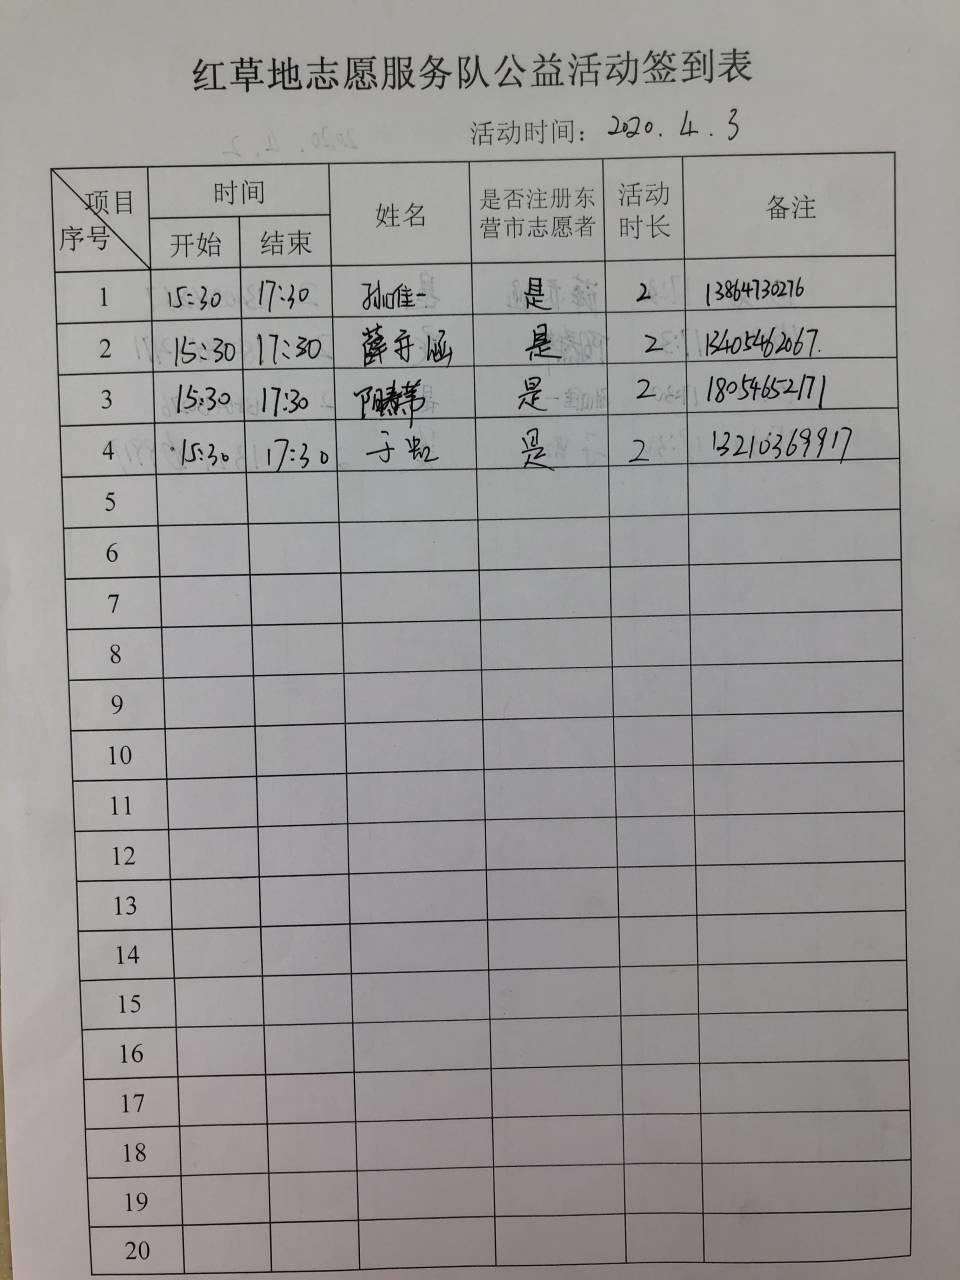 红草地志愿服务队公益活动签到表
活动时间：2020.4.3
项目 序号 时间 开始 结束 姓名 是否注册东营市志愿者 活动时长 备注
1 15:30 17:30 孙唯一 是 2 13864730276
2 15:30 17:30 薛亦涵 是 2 13405462067.
3 15:30 17:30 是 2 18054652171
4 15:30 17:30 是 2 13210369917
5
6
7
8
9
10
11
12
13
14
15
16
17
18
19
20